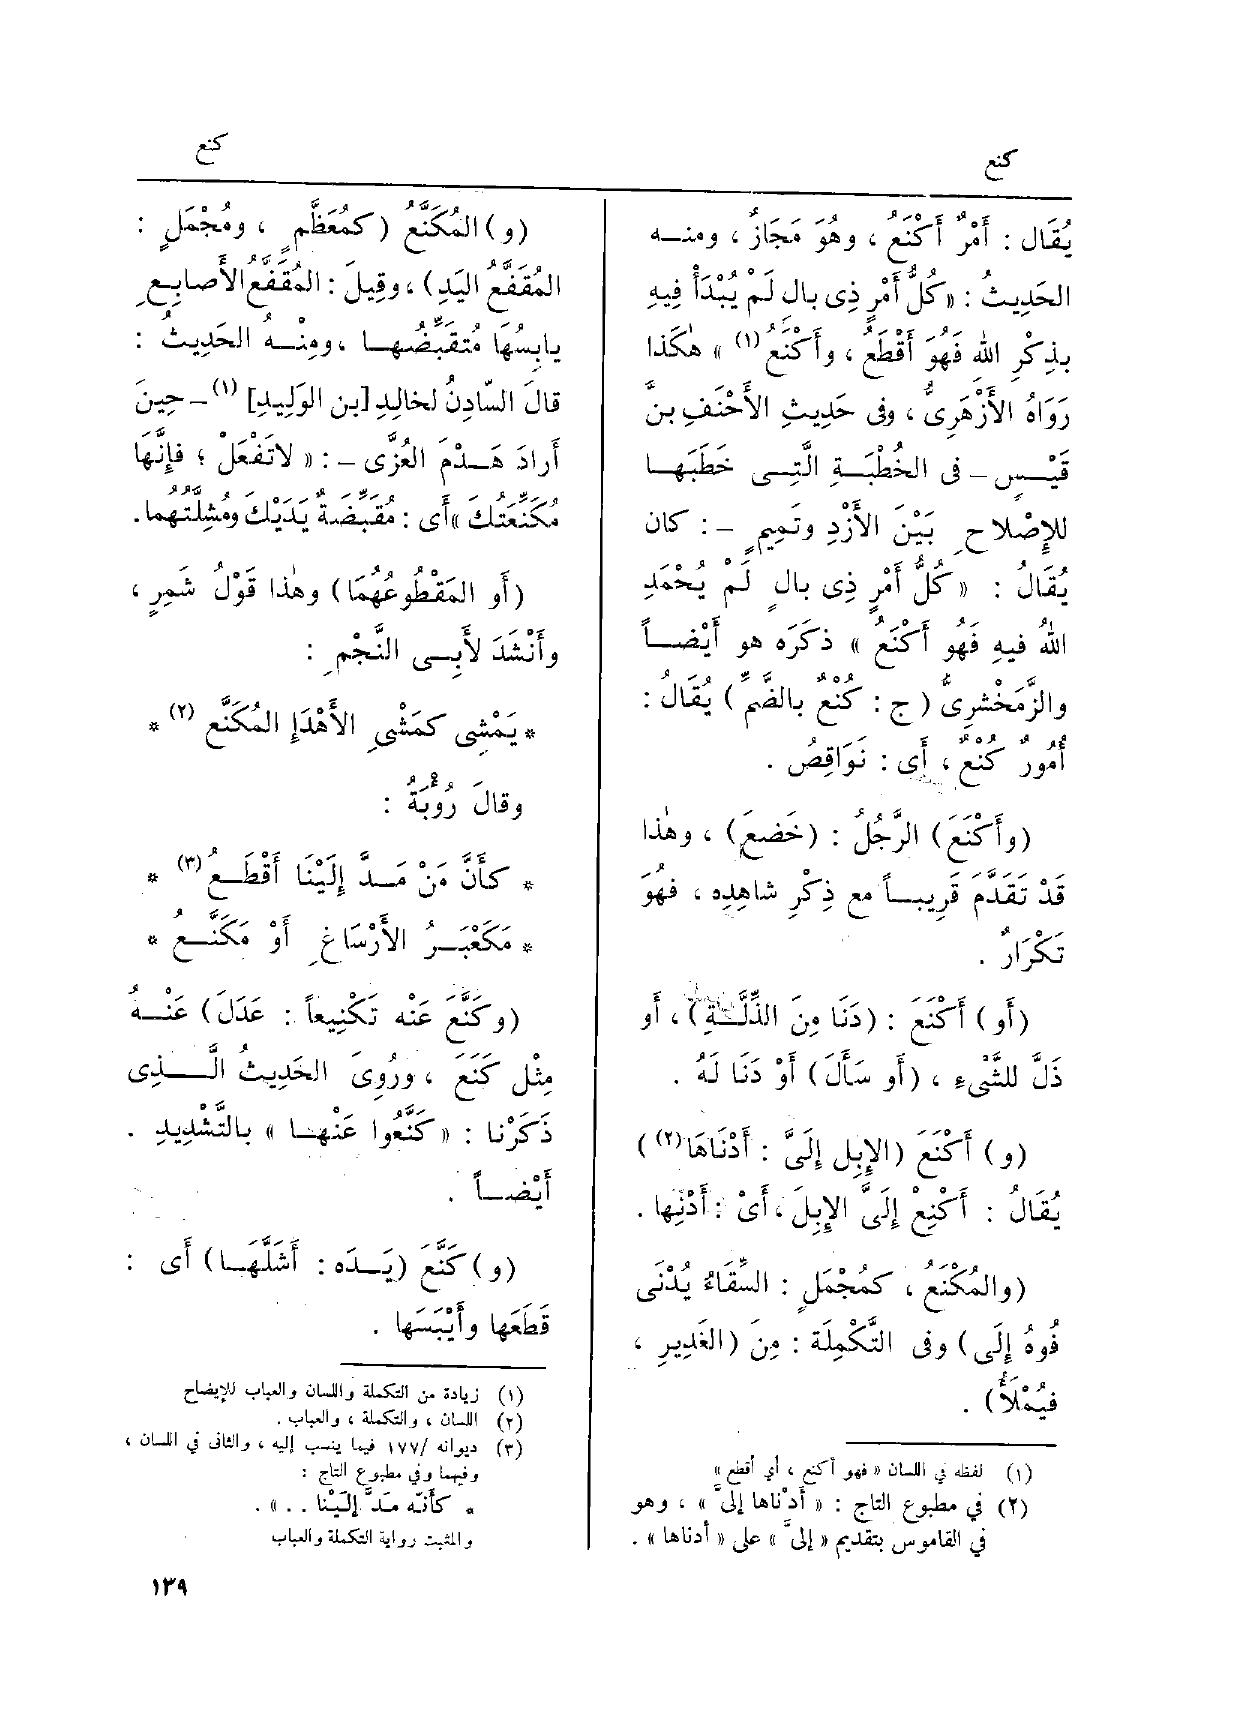 كنع
كنع
يُقَال : أَمْرٌ أَكْنَعُ ، وهُوَ مَجَازٌ ، ومنـه
الحَدِيثُ : «كُلُّ أَمْرٍ ذِى بالٍ لَمْ يُبْدَأْ فِيهِ
بذِكْرِ اللهِ فَهُوَ أَقْطَعُ ، وأَكْنَعُ (١) » هٰكَذا
رَوَاهُ الأَزْهَرِىُّ ، وفى حَدِيثِ الأَحْنَفِ بنِ
قَيْـسٍ – فى الخُطْبَـةِ الَّتِـى خَطَبَهـا
للإِصْلاحِ بَيْنَ الأَزْدِ وتَمِيمٍ – : كان
يُقَالُ : « كُلُّ أَمْرٍ ذِى بالٍ لَمْ يُحْمَدِ
اللهُ فيهِ فَهُو أَكْنَعُ » ذكَرَه هو أَيْضـاً
والزَّمَخْشَرِىُّ ( ج : كُنْعٌ بالضَّمِّ ) يُقَالُ :
أُمُورٌ كُنْعٌ ، أَى : نَوَاقِصُ .
(وأَكْنَعَ) الرَّجُلُ : (خَضَعَ) ، وهٰذا
قَدْ تَقَدَّمَ قَرِيبـاً مع ذِكْرِ شاهِدِه ، فهُوَ
تَكْرَارٌ .
(أَو) أَكْنَعَ : (دَنَا مِنَ الذِّلَّـةِ) ، أَو
ذَلَّ للشَّىءِ ، (أَو سَأَلَ) أَوْ دَنَا لَهُ .
(و) أَكْنَعَ (الإِبِلَ إِلَىَّ : أَدْنَاهَا(٢) )
يُقَالُ : أَكْنِعْ إِلَىَّ الإِبِلَ ، أَىْ : أَدْنِها .
(والمُكْنَعُ ، كمُجْمَلٍ : السِّقَاءُ يُدْنَى
فُوهُ إِلَى) وفى التَّكْمِلَة : مِنَ (الغَدِيرِ ،
فيُمْلَأُ) .
(١) لفظه في اللسان « فهو أكنع ، أي أقطع »
(٢) في مطبوع التاج : « أدْناها إلىَّ » ، وهو
في القاموس بتقديم « إلىَّ » على « أدناها » .
(و) المُكَنَّعُ (كمُعَظَّمٍ ، ومُجْمَلٍ :
المُقَفَّعُ اليَدِ) ، وقِيلَ : المُقَفَّعُ الأَصابِعِ
يابِسُهَا مُتَقَبِّضُهـا ، ومِنْـهُ الحَدِيثُ :
قالَ السّادِنُ لخالِدِ [بن الوَلِيدِ] (١) – حِينَ
أَرادَ هَـدْمَ العُزَّى – : « لاتَفْعَلْ ؛ فإِنَّهَا
مُكَنِّعَتُكَ » أَى : مُقَبِّضَةٌ يَدَيْكَ ومُشِلَّتُهُما.
(أَو المَقْطُوعُهُمَا) وهٰذا قَوْلُ شَمِرٍ ،
وأَنْشَدَ لأَبِـى النَّجْمِ :
* يَمْشِى كمَشْىِ الأَهْدَإِ المُكَنَّعِ (٢) *
وقالَ رُؤْبَةُ :
* كأَنَّ مَنْ مَـدَّ إِلَيْنَا أَقْطَـعُ (٣) *
* مَكَعْبَـرُ الأَرْسَاغِ أَوْ مَكَنَّـعُ *
(وكَنَّعَ عَنْه تَكْنِيعاً : عَدَلَ) عَنْـهُ
مِثْل كَنَعَ ، ورُوِىَ الحَدِيثُ الَّـذِى
ذَكَرْنا : « كَنَّعُوا عَنْهـا » بالتَّشْدِيدِ .
أَيْضـاً .
(و) كَنَّعَ (يَـدَه : أَشَلَّهَـا) أَى :
قَطَعَها وأَيْبَسَها .
(١) زيادة من التكملة واللسان والعباب للإيضاح
(٢) اللسان ، والتكملة ، والعباب .
(٣) ديوانه /١٧٧ فيما ينسب إليه ، والثاني في اللسان ،
وفيهما وفي مطبوع التاج :
* كأَنّه مَدَّ إِلَيْنا . . » .
والمثبت رواية التكملة والعباب
١٣٩